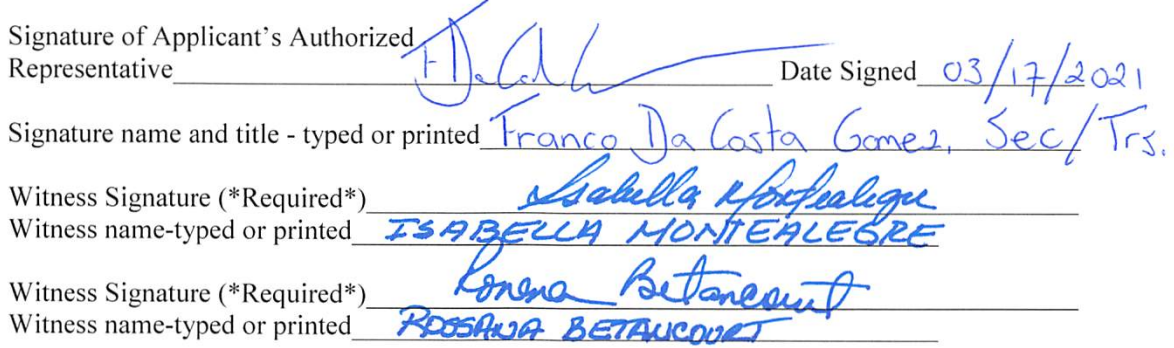 Signature of Applicant's Authorized
Representative Date Signed 03/17/2021
Signature name and title - typed or printed Franco Da Costa Gomez, Sec/Trs.
Witness Signature (*Required*) Isabella Montealegre
Witness name-typed or printed ISABELLA MONTEALEGRE
Witness Signature (*Required*) Betancourt
Witness name-typed or printed ROSSANA BETANCOURT